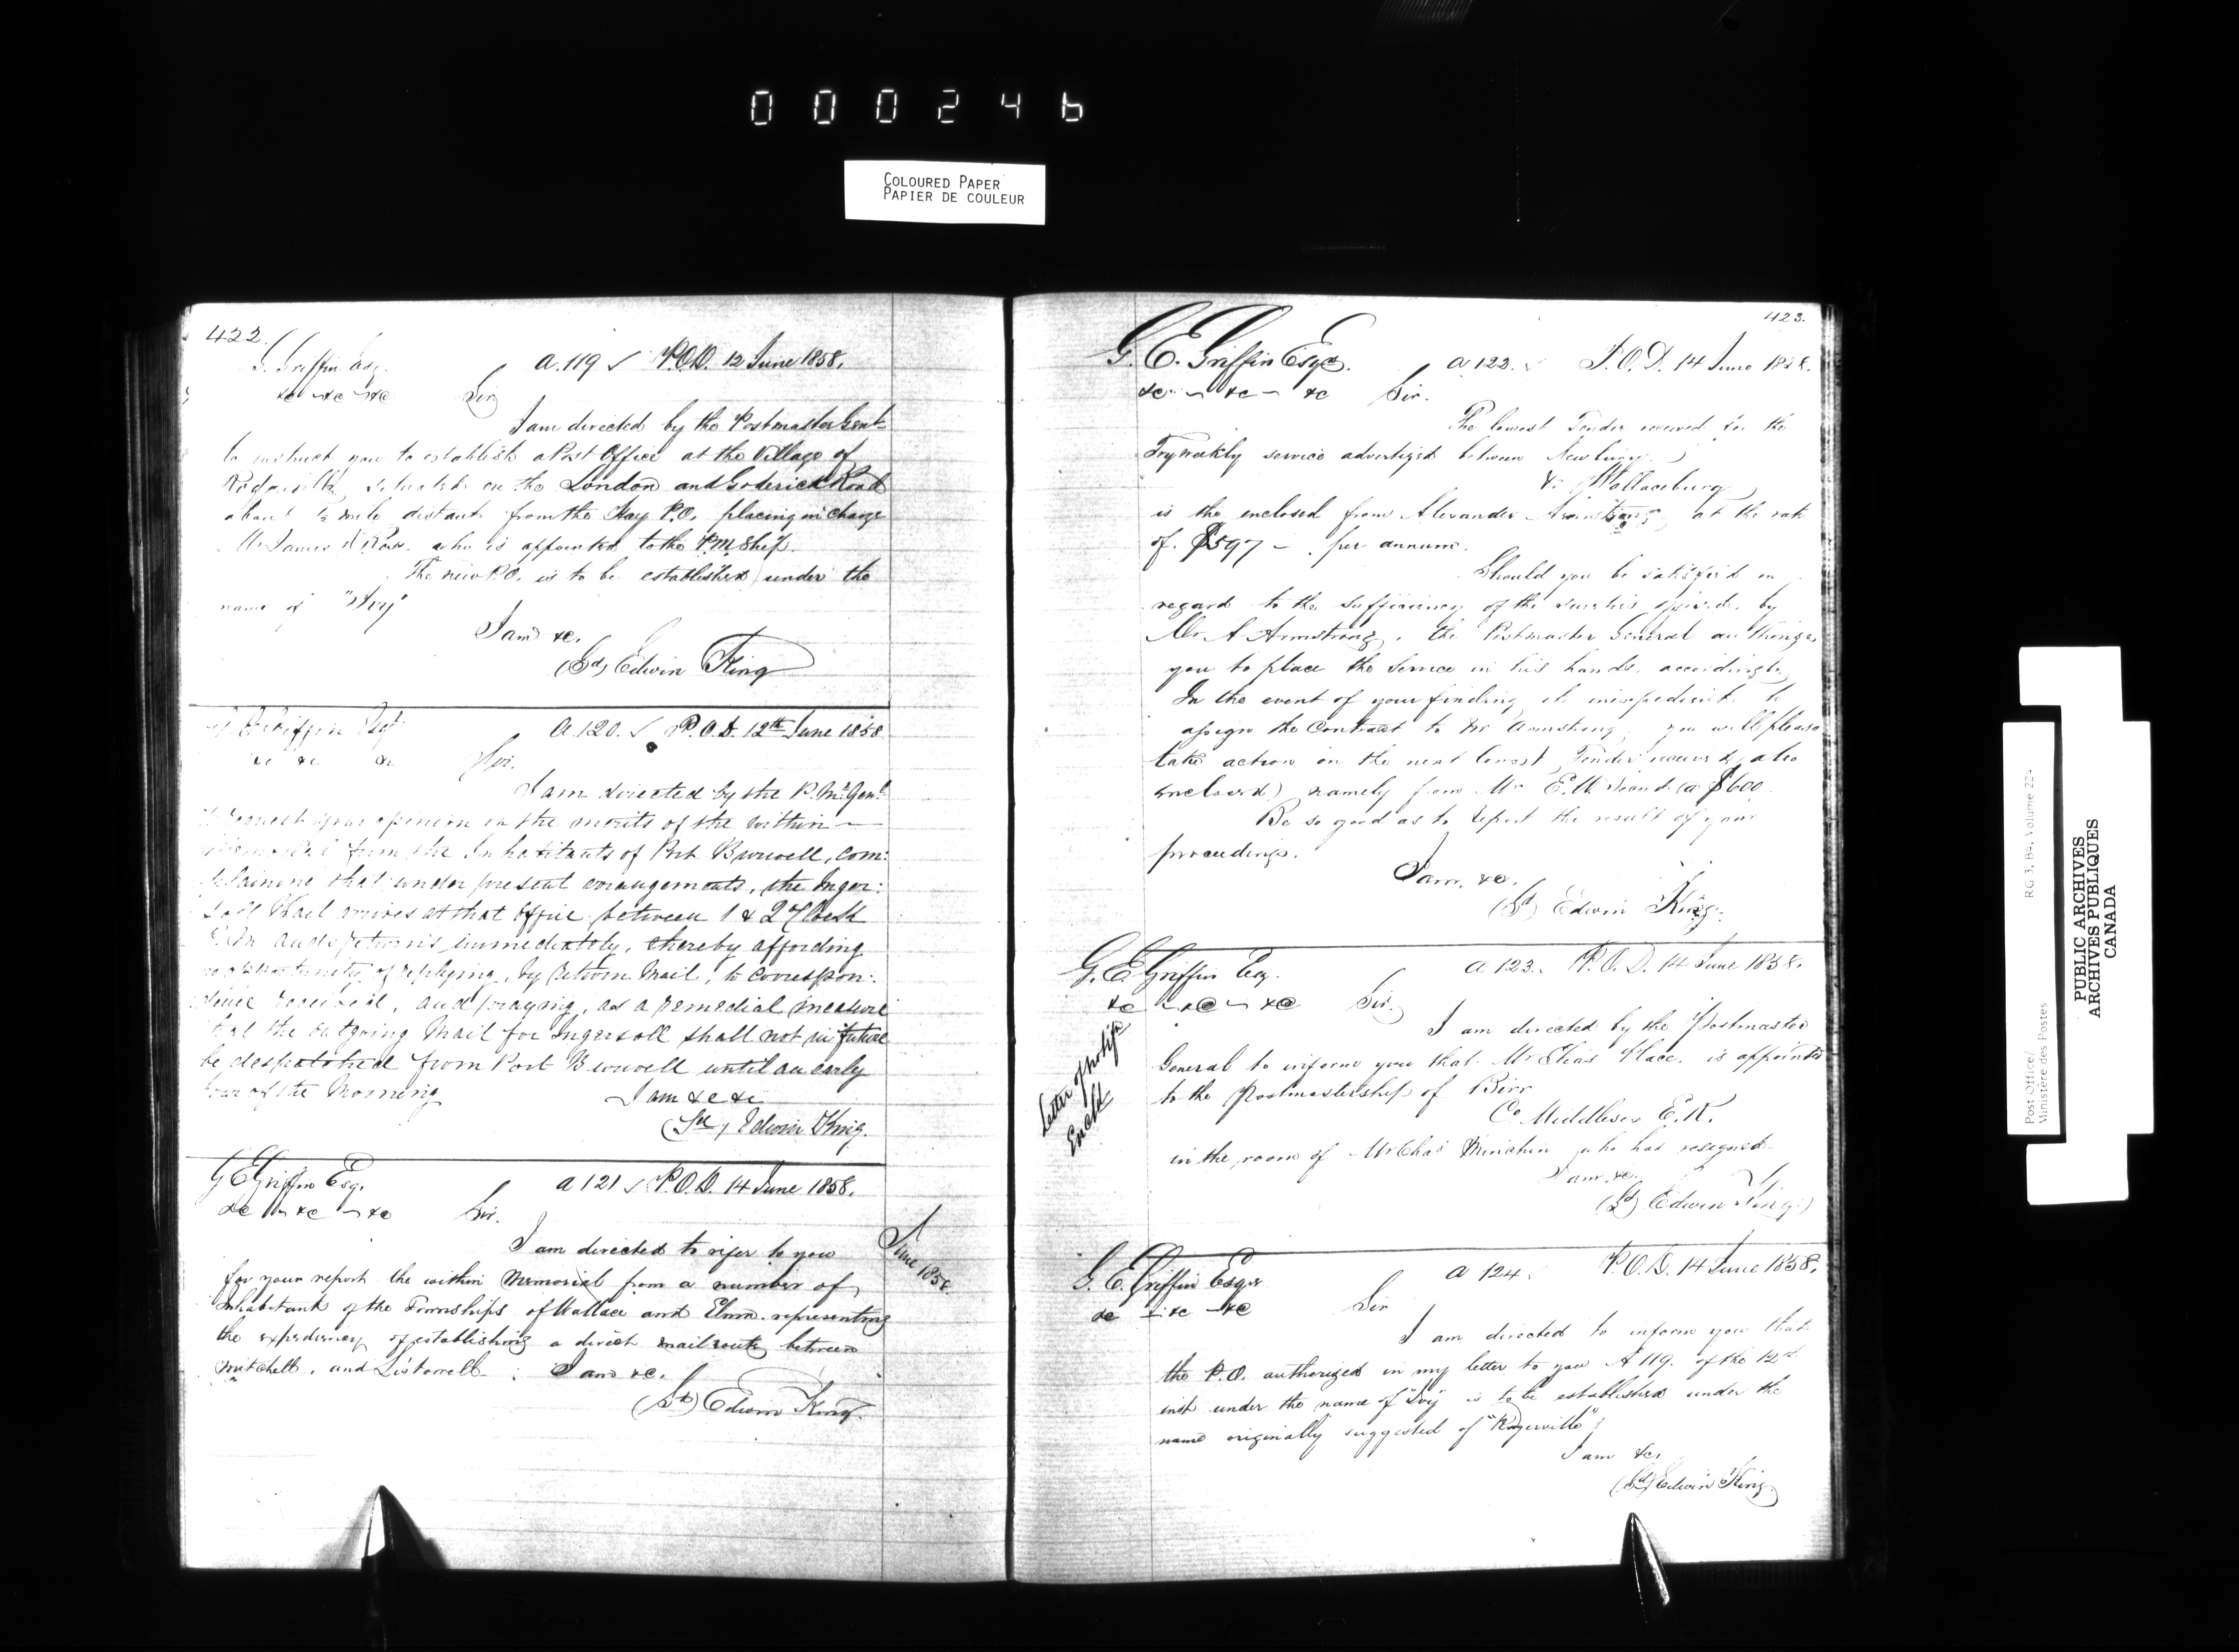 000246
COLOURED PAPER
PAPIER DE COULEUR
422.
G. Griffin Esq. A.119 ✓ P.O.D. 12 June 1858.
&c ~ &c ~ &c Sir
I am directed by the Postmaster Genl
to instruct you to establish a Post Office at the Village of
situated on the London and Goderich Road
about ½ mile distant from the Hay P.O. placing in charge
Mr James who is appointed to the P.M.Ship.
The new P.O. is to be established under the
name of "Ivy"
I am &c.
(Sd) Edwin King
G E Griffin Esqr A.120. ✓ P.O.D. 12th June 1858
&c &c &c Sir.
I am directed by the P. Mr. Genl
to request your opinion on the merits of the within —
Memorial from the Inhabitants of Port Burwell, com:
plaining that under present arrangements, the Inger:
soll Mail arrives at that Office between 1 & 2 O'Clock
P.M. and returns immediately, thereby affording
no opportunity of replying, by return Mail, to correspon:
dence received, and praying, as a remedial measure
that the outgoing Mail for Ingersoll shall not in future
be despatched from Port Burwell until an early
hour of the Morning
I am &c &c
(Sd) Edwin King.
G E Griffin Esq. A 121 ✓ P.O.D. 14 June 1858.
&c ~ &c ~ &c Sir.
I am directed to refer to you
for your report the within Memorial from a number of
Inhabitants of the Townships of Wallace and Elma representing
the expediency of establishing a direct mail route between
Mitchell, and Listowell. I am &c.
(Sd) Edwin King.
June 1858.
423.
G. E. Griffin Esqr. A 122. ✓ P.O.D. 14 June 1858.
&c ~ &c ~ &c Sir.
The lowest Tender received for the
Tryweekly service advertized between Newbury
& Wallaceburg
is the enclosed from Alexander Armstrong, at the rate
of $597 – per annum.
Should you be satisfied in
regard to the sufficiency of the sureties by
Mr A Armstrong, the Postmaster General authorizes
you to place the service in his hands, accordingly.
In the event of your finding it inexpedient to
assign the Contract to Mr Armstrong, you will please
take action on the next lowest Tender received, also
enclosed) namely from Mr E. @ $600
Be so good as to report the result of your
proceedings.
I am, &c.
(Sd) Edwin King.
G. E. Griffin Esq. A 123. P.O.D. 14 June 1858.
&c ~ &c ~ &c Sir.
I am directed by the Postmaster
General to inform you that Mr Elias Place, is appointed
to the Postmastership of Birr
Co Middlesex E.R.
in the room of Mr Chas Minchin who has resigned
I am &c.
(Sd) Edwin King.
Letter of
Encld
G. E. Griffin Esqr A 124. P.O.D. 14 June 1858.
&c ~ &c ~ &c Sir
I am directed to inform you that
the P.O. authorized in my letter to you A 119. of the 12th
inst under the name of "Ivy" is to be established under the
name originally suggested of "Rogerville"
I am &c.
(Sd) Edwin King.
Post Office/ RG 3, B4, Volume 224
Ministère des Postes
PUBLIC ARCHIVES
ARCHIVES PUBLIQUES
CANADA